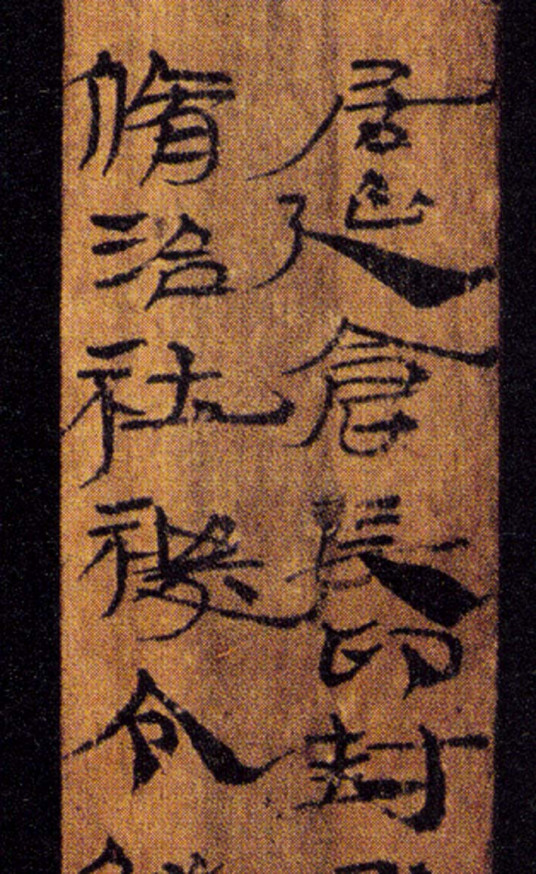 居延倉長印封
脩治社禝令